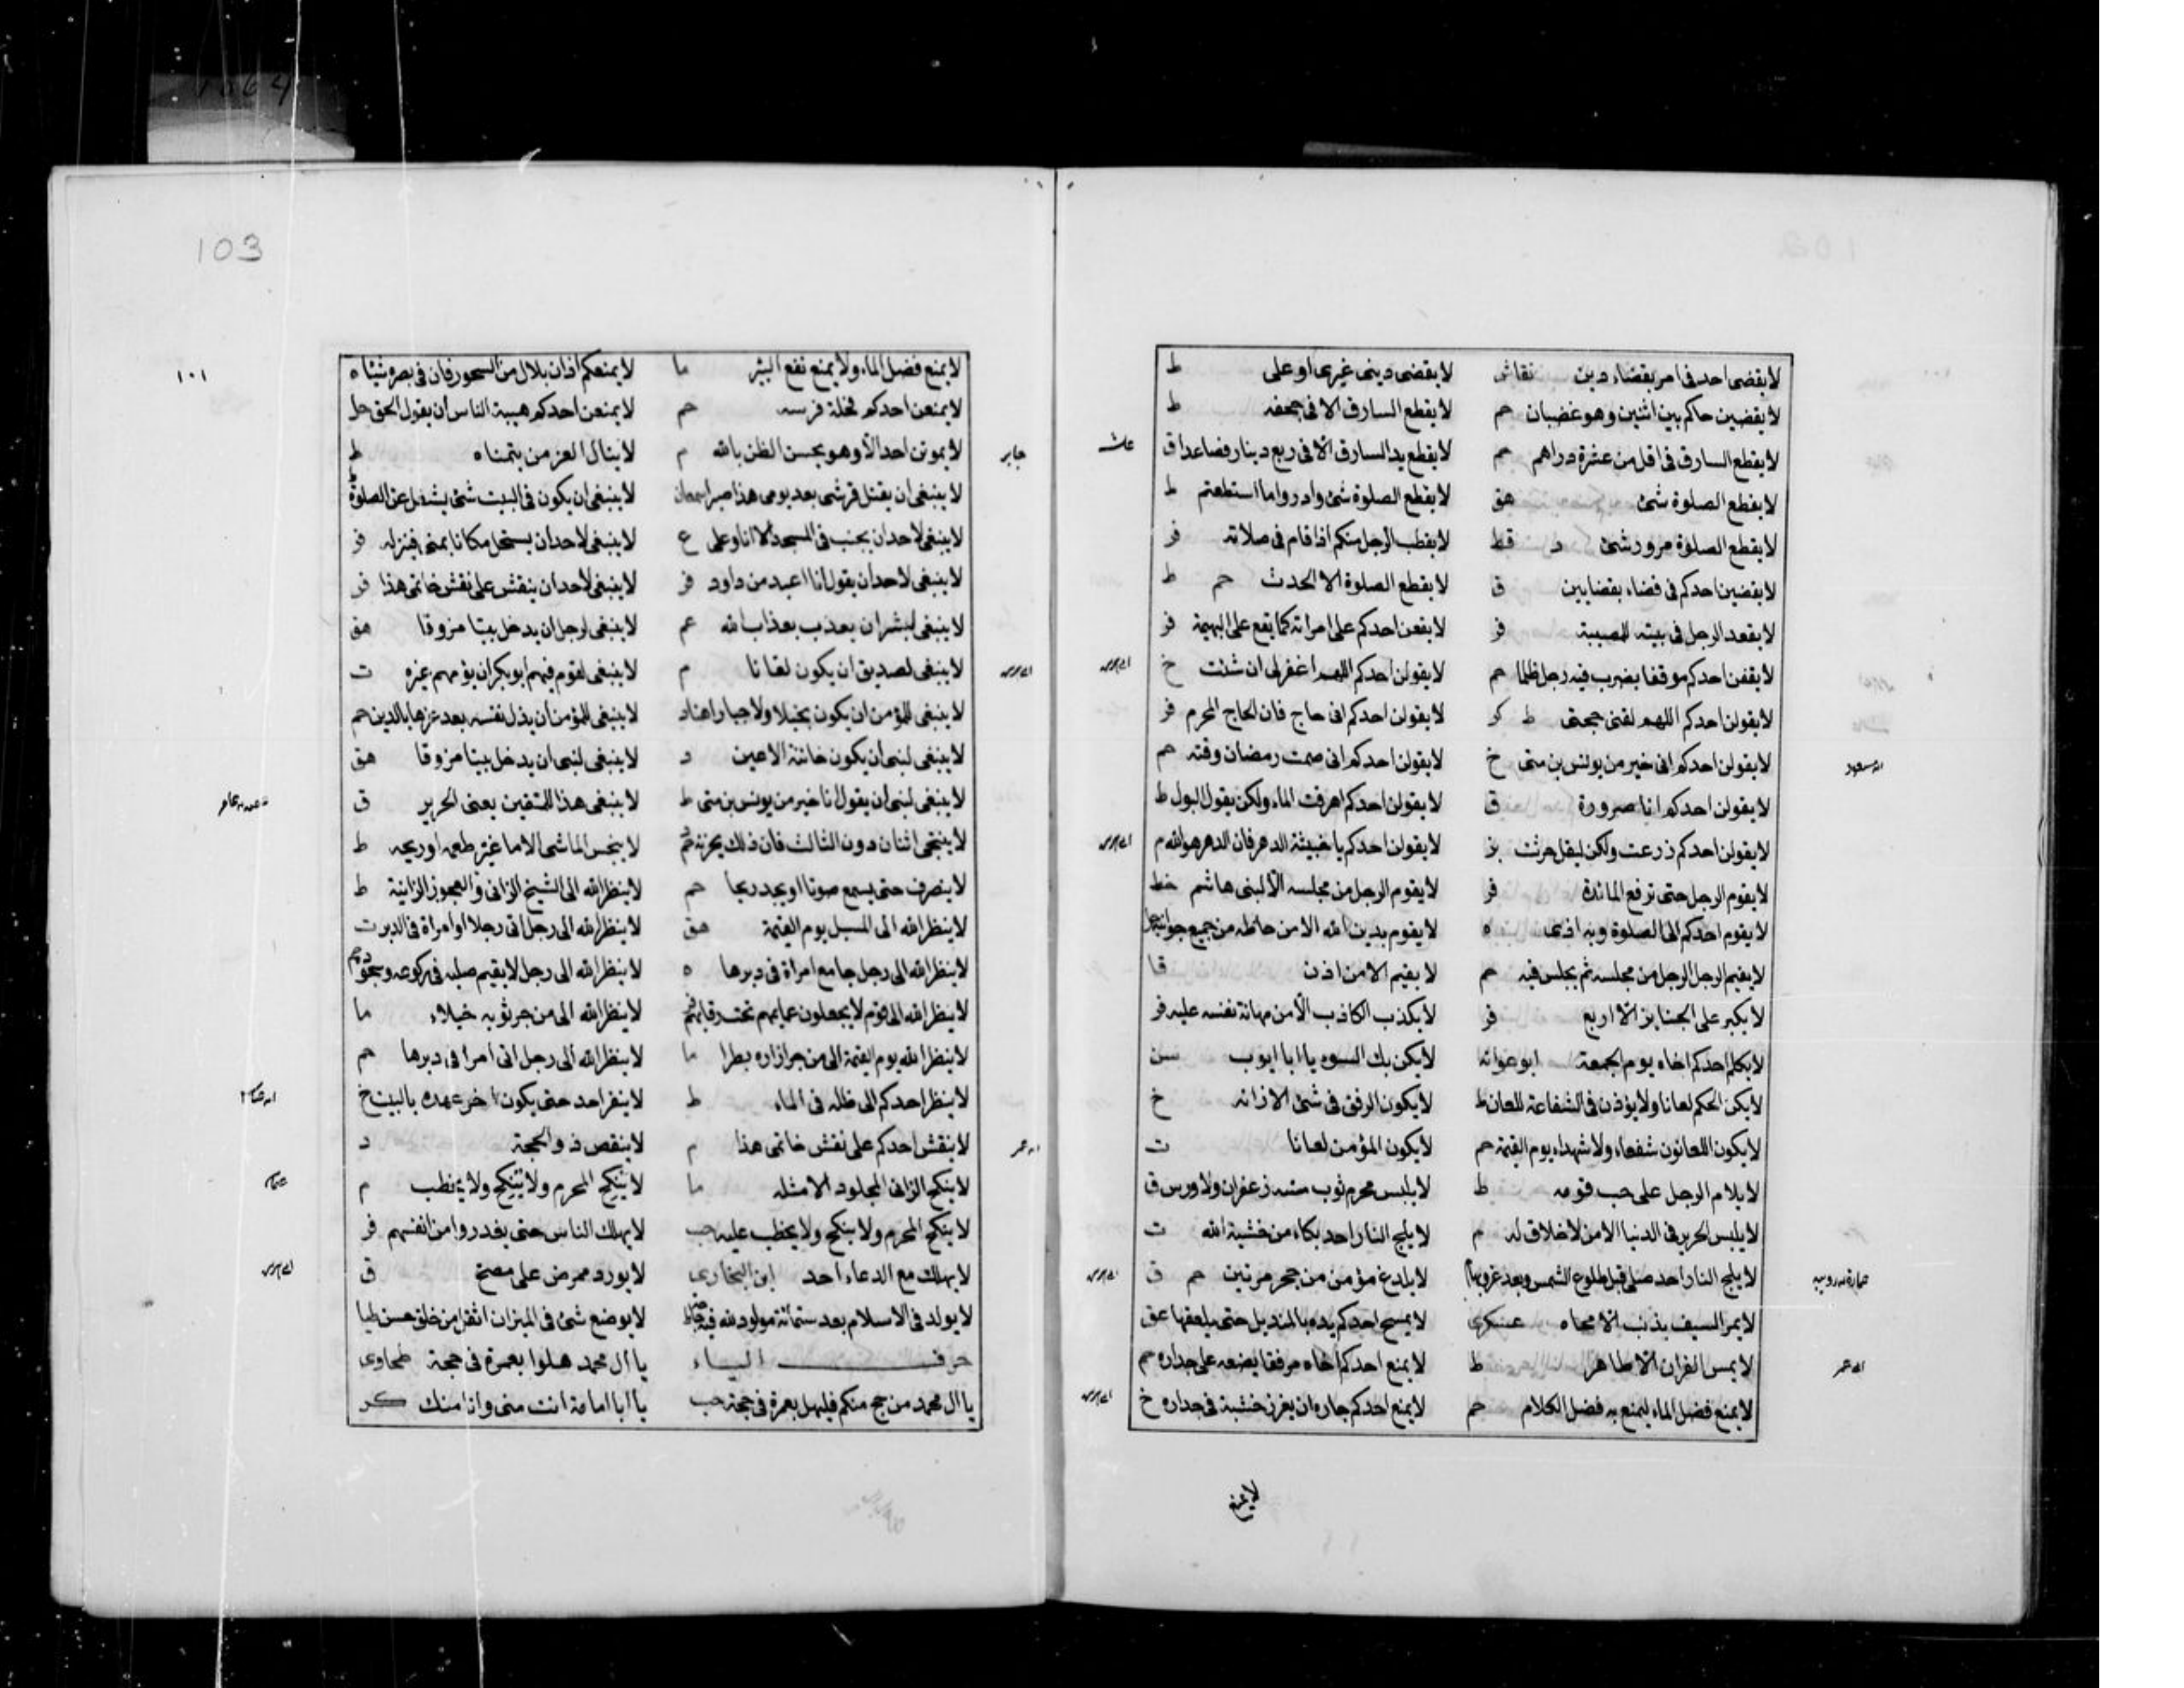 لا يقضى احد فى امر بقضاء دين نقاش لا يقضى دينى غيرى او على ط
لا يقضين حاكم بين اثنين وهو غضبان حم لا يقطع السارق الا فى جحفه ط
لا يقطع السارق فى اقل من عشرة دراهم حم لا يقطع يد السارق الا فى ربع دينار فصاعدا ق
لا يقطع الصلوة شئ هق لا يقطع الصلوة شئ وادروا ما استطعتم ط
لا يقطع الصلوة مرور شئ د قط الرجل منكم اذا قام فى صلاته فر
لا يقضين احدكم فى قضاء بقضايين ق لا يقطع الصلوة الا الحدث حم ط
لا يقعد الرجل فى بيته للمصيبة فر لا يقعن احدكم على امراته كما يقع على البهيمة فر
لا يقفن احدكم موقفا يضرب فيه رجل ظلما حم لا يقولن احدكم اللهم اغفر لى ان شئت خ
لا يقولن احدكم اللهم لقنى حجتى ط كر لا يقولن احدكم انى حاج فان الحاج المحرم فر
لا يقولن احدكم انى خير من يونس بن متى خ لا يقولن احدكم انى صمت رمضان وقته حم
لا يقولن احدكم انا صرورة ق لا يقولن احدكم اهرقت الماء ولكن يقول البول ط
لا يقولن احدكم زرعت ولكن ليقل حرثت بز لا يقولن احدكم يا خيبة الدهر فان الدهر هو الله م
لا يقوم الرجل حتى ترفع المائدة فر لا يقوم الرجل من مجلسه الا لبنى هاشم خط
لا يقوم احدكم الى الصلوة وبه اذى ه لا يقوم بدين الله الا من حاطه من جميع جوانبه
لا يقيم الرجل الرجل من مجلسه ثم يجلس فيه حم لا يقيم الا من اذن قا
لا يكبر على الجنايز الا اربع فر لا يكذب الكاذب الا من مهانة نفسه عليه فر
لا يكلم احدكم اخاه يوم الجمعة ابو عوانه لا يكن بك السوء يا ابا ايوب سن
لا يكن الحكم لعانا ولا يؤذن فى الشفاعة للعان ط لا يكون الرفق فى شئ الا زانه خ
لا يكون اللعانون شفعاء ولا شهداء يوم القيمة حم لا يكون المؤمن لعانا ت
لا يلام الرجل على حب قومه ط لا يلبس محرم ثوب مسه زعفران ولا ورس ق
لا يلبس الحرير فى الدنيا الا من لا خلاق له م لا يلج النار احد بكاء من خشية الله ت
لا يلج النار احد صلى قبل طلوع الشمس وبعد غروبها لا يلدغ مؤمن من جحر مرتين حم ق
لا يمر السيف بذنب الا محاه عسكرى لا يمسح احدكم يده بالمنديل حتى يلعقها عق
لا يمس القران الا طاهر ط لا يمنع احدكم اخاه مرفقا يضعه على جداره حم
لا يمنع فضل الماء ليمنع به فضل الكلام حم لا يمنع احدكم جاره ان يغرز خشبة فى جداره خ
لا يمنع
103
١٠١
لا يمنع فضل الماء ولا يمنع نفع البئر ما لا يمنعكم اذان بلال من السحور فان فى بصره شيئا ه
لا يمنعن احدكم فرسه حم لا يمنعن احدكم هيبة الناس ان يقول الحق حل
جابر لا يموتن احد الا وهو يحسن الظن بالله م لا ينال العز من يتمناه ط
لا ينبغى ان يقتل قرشى بعد يومى هذا صبرا لا ينبغى ان يكون فى البيت شئ يشغل عن الصلوة
لا ينبغى لاحد ان يجنب فى المسجد الا انا وعلى ع لا ينبغى لاحد ان يستحل مكانا بمنى فر
لا ينبغى لاحد ان يقول انا اعبد من داود فر لا ينبغى لاحد ان ينقش على نقش خاتمى هذا فر
لا ينبغى لبشر ان يعذب بعذاب الله عم لا ينبغى لرجل ان يدخل بيتا مزوقا هق
لا ينبغى لصديق ان يكون لعانا م لا ينبغى لقوم فيهم ابو بكر ان يؤمهم غيره ت
لا ينبغى للمؤمن ان يكون بخيلا ولا جبانا هناد لا ينبغى للمؤمن ان يذل نفسه بعد عزها بالدين حم
لا ينبغى لنبى ان يكون خائنة الاعين د لا ينبغى لنبى ان يدخل بيتا مزوقا هق
لا ينبغى لنبى ان يقول انا خير من يونس بن متى ط لا ينبغى هذا للمتقين يعنى الحرير ق
لا ينتجى اثنان دون الثالث فان ذلك يحزنه حم لا ينجس الماء شئ الا ما غير طعمه او ريحه ط
لا ينصرف حتى يسمع صوتا او يجد ريحا حم لا ينظر الله الى الشيخ الزانى والعجوز الزانية ط
لا ينظر الله الى المسبل يوم القيمة هق لا ينظر الله الى رجل اتى رجلا او امراة فى الدبر ت
لا ينظر الله الى رجل جامع امراة فى دبرها ه لا ينظر الله الى رجل لا يقيم صلبه فى ركوعه وسجوده حم
لا ينظر الله الى قوم لا يجعلون عمايمهم تحت لا ينظر الله الى من جر ثوبه خيلاء ما
لا ينظر الله يوم القيمة الى من جر ازاره بطرا ما لا ينظر الله الى رجل اتى امراة فى دبرها حم
لا ينظر احدكم الى ظله فى الماء ط لا ينفر احد حتى يكون اخر عهده بالبيت خ
لا ينقش احدكم على نقش خاتمى هذا م لا ينقص ذو الحجة د
لا ينكح الزانى المجلود الا مثله ما لا ينكح المحرم ولا ينكح ولا يخطب م
لا ينكح المحرم ولا ينكح ولا يخطب عليه حب لا يهلك الناس حتى يغدروا من انفسهم فر
لا يهلك مع الدعاء احد ابن النجارى لا يورد ممرض على مصح ق
لا يولد فى الاسلام بعد ستمائة مولود لله فيه لا يوضع شئ فى الميزان اثقل من خلق حسن طيا
حرف اليــاء يا ال محمد هلوا بعمرة فى حجة طحاوى
يا ال محمد من حج منكم فليهل بعمرة فى حجة حب يا ابا امامة انت منى وانا منك كر